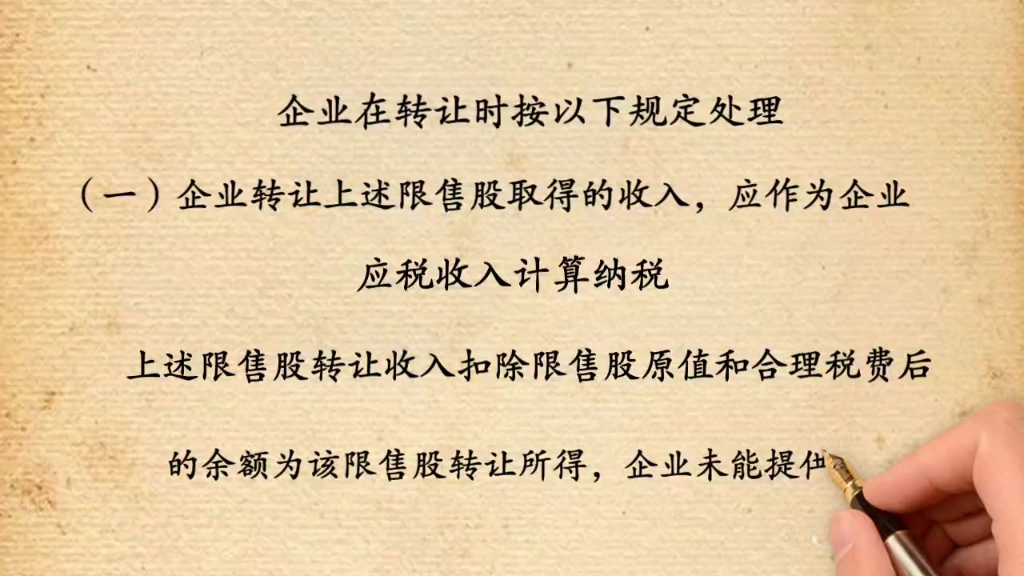 企业在转让时按以下规定处理
（一）企业转让上述限售股取得的收入，应作为企业
应税收入计算纳税
上述限售股转让收入扣除限售股原值和合理税费后
的余额为该限售股转让所得，企业未能提